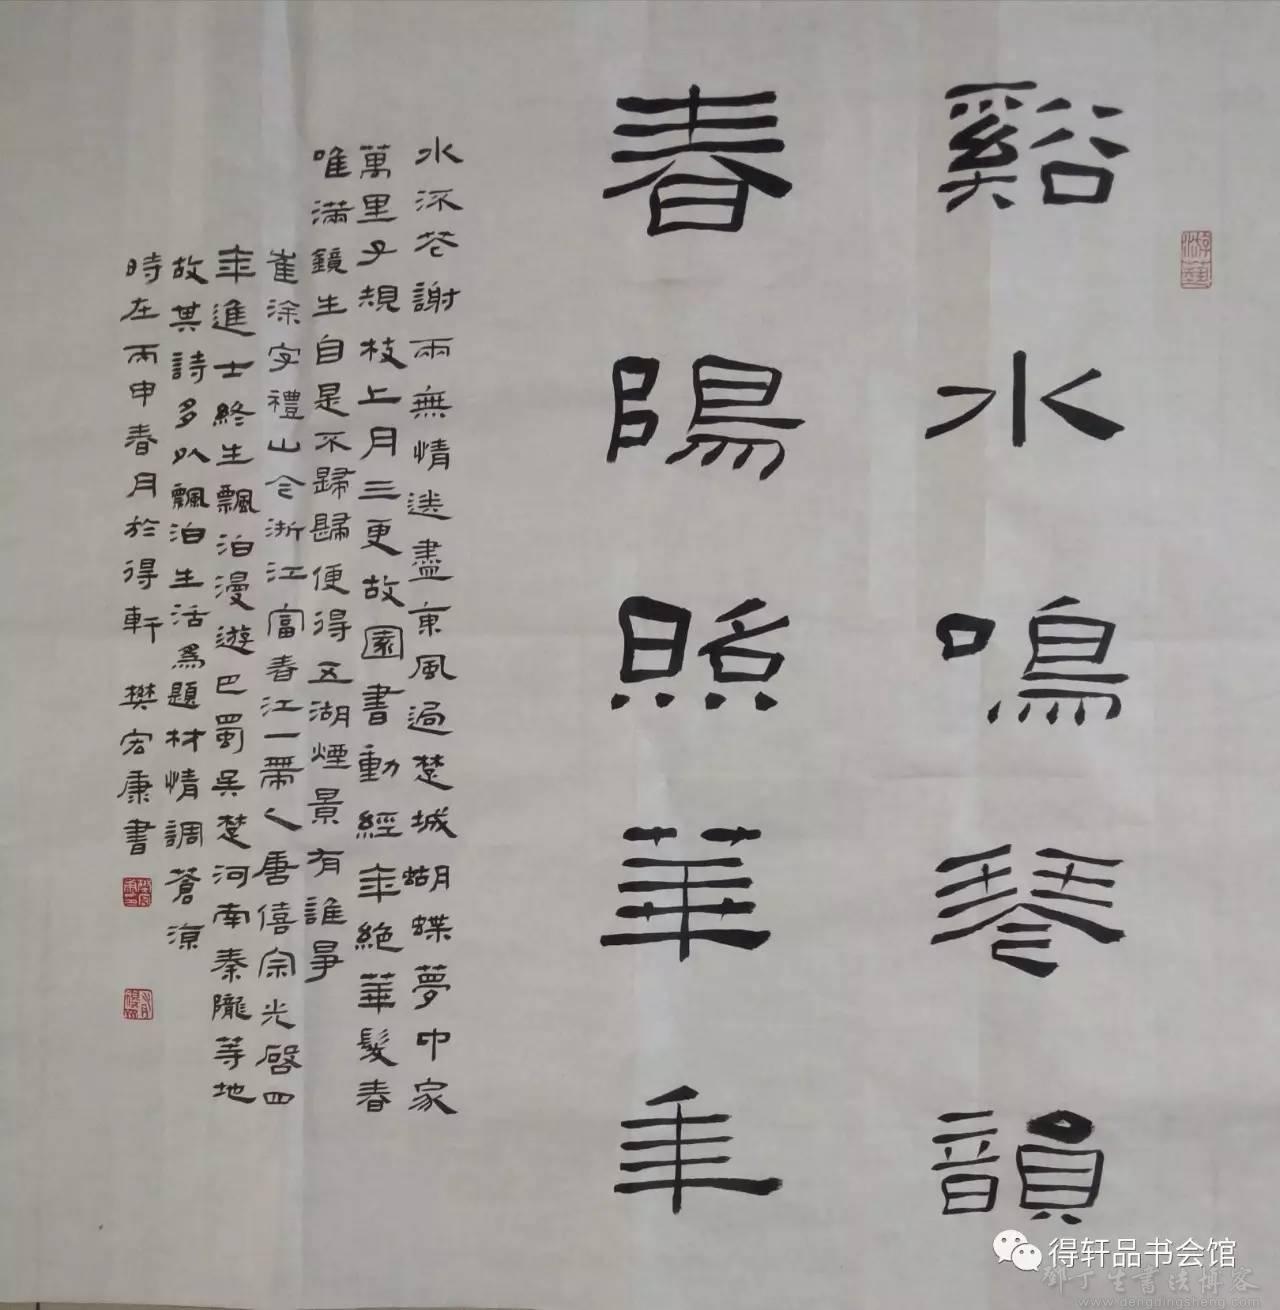 谿水鳴琴韻
春陽照華年
水流花謝兩無情送盡東風過楚城蝴蝶夢中家
萬里子規枝上月三更故園書動經年絶華髮春
唯滿鏡生自是不歸歸便得五湖煙景有誰爭
崔涂字禮山今浙江富春江一帶人唐僖宗光啓四
年進士終生飄泊漫遊巴蜀吳楚河南秦隴等地
故其詩多以飄泊生活爲題材情調蒼涼
時在丙申春月於得軒 樊宏康書
游藝
得轩品书会馆
邓丁生書法博客
www.dengdingsheng.com